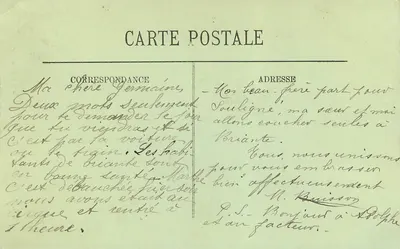 CARTE POSTALE
CORRESPONDANCE
Ma chère Germaine
Deux mots seulement
pour te demander le jour
que tu viendras et si
c'est par la voiture
ou le train. Les habi-
tants de Briante sont
en bonne santé. Marthe
c'est débauchée hier soir
nous avons était au
cirque et rentré à
1 heure.
ADRESSE
- Mon beau-frère part pour
Souligné, ma sœur et moi
allons coucher seules à
Briante.
Tous, nous unissons
pour vous embrasser
bien affectueusement
M. Buisson
P.S. Bonjour à Adolphe
et au facteur.